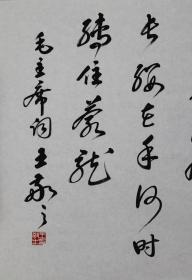 长缨在手何时
缚住苍龙
毛主席词 王